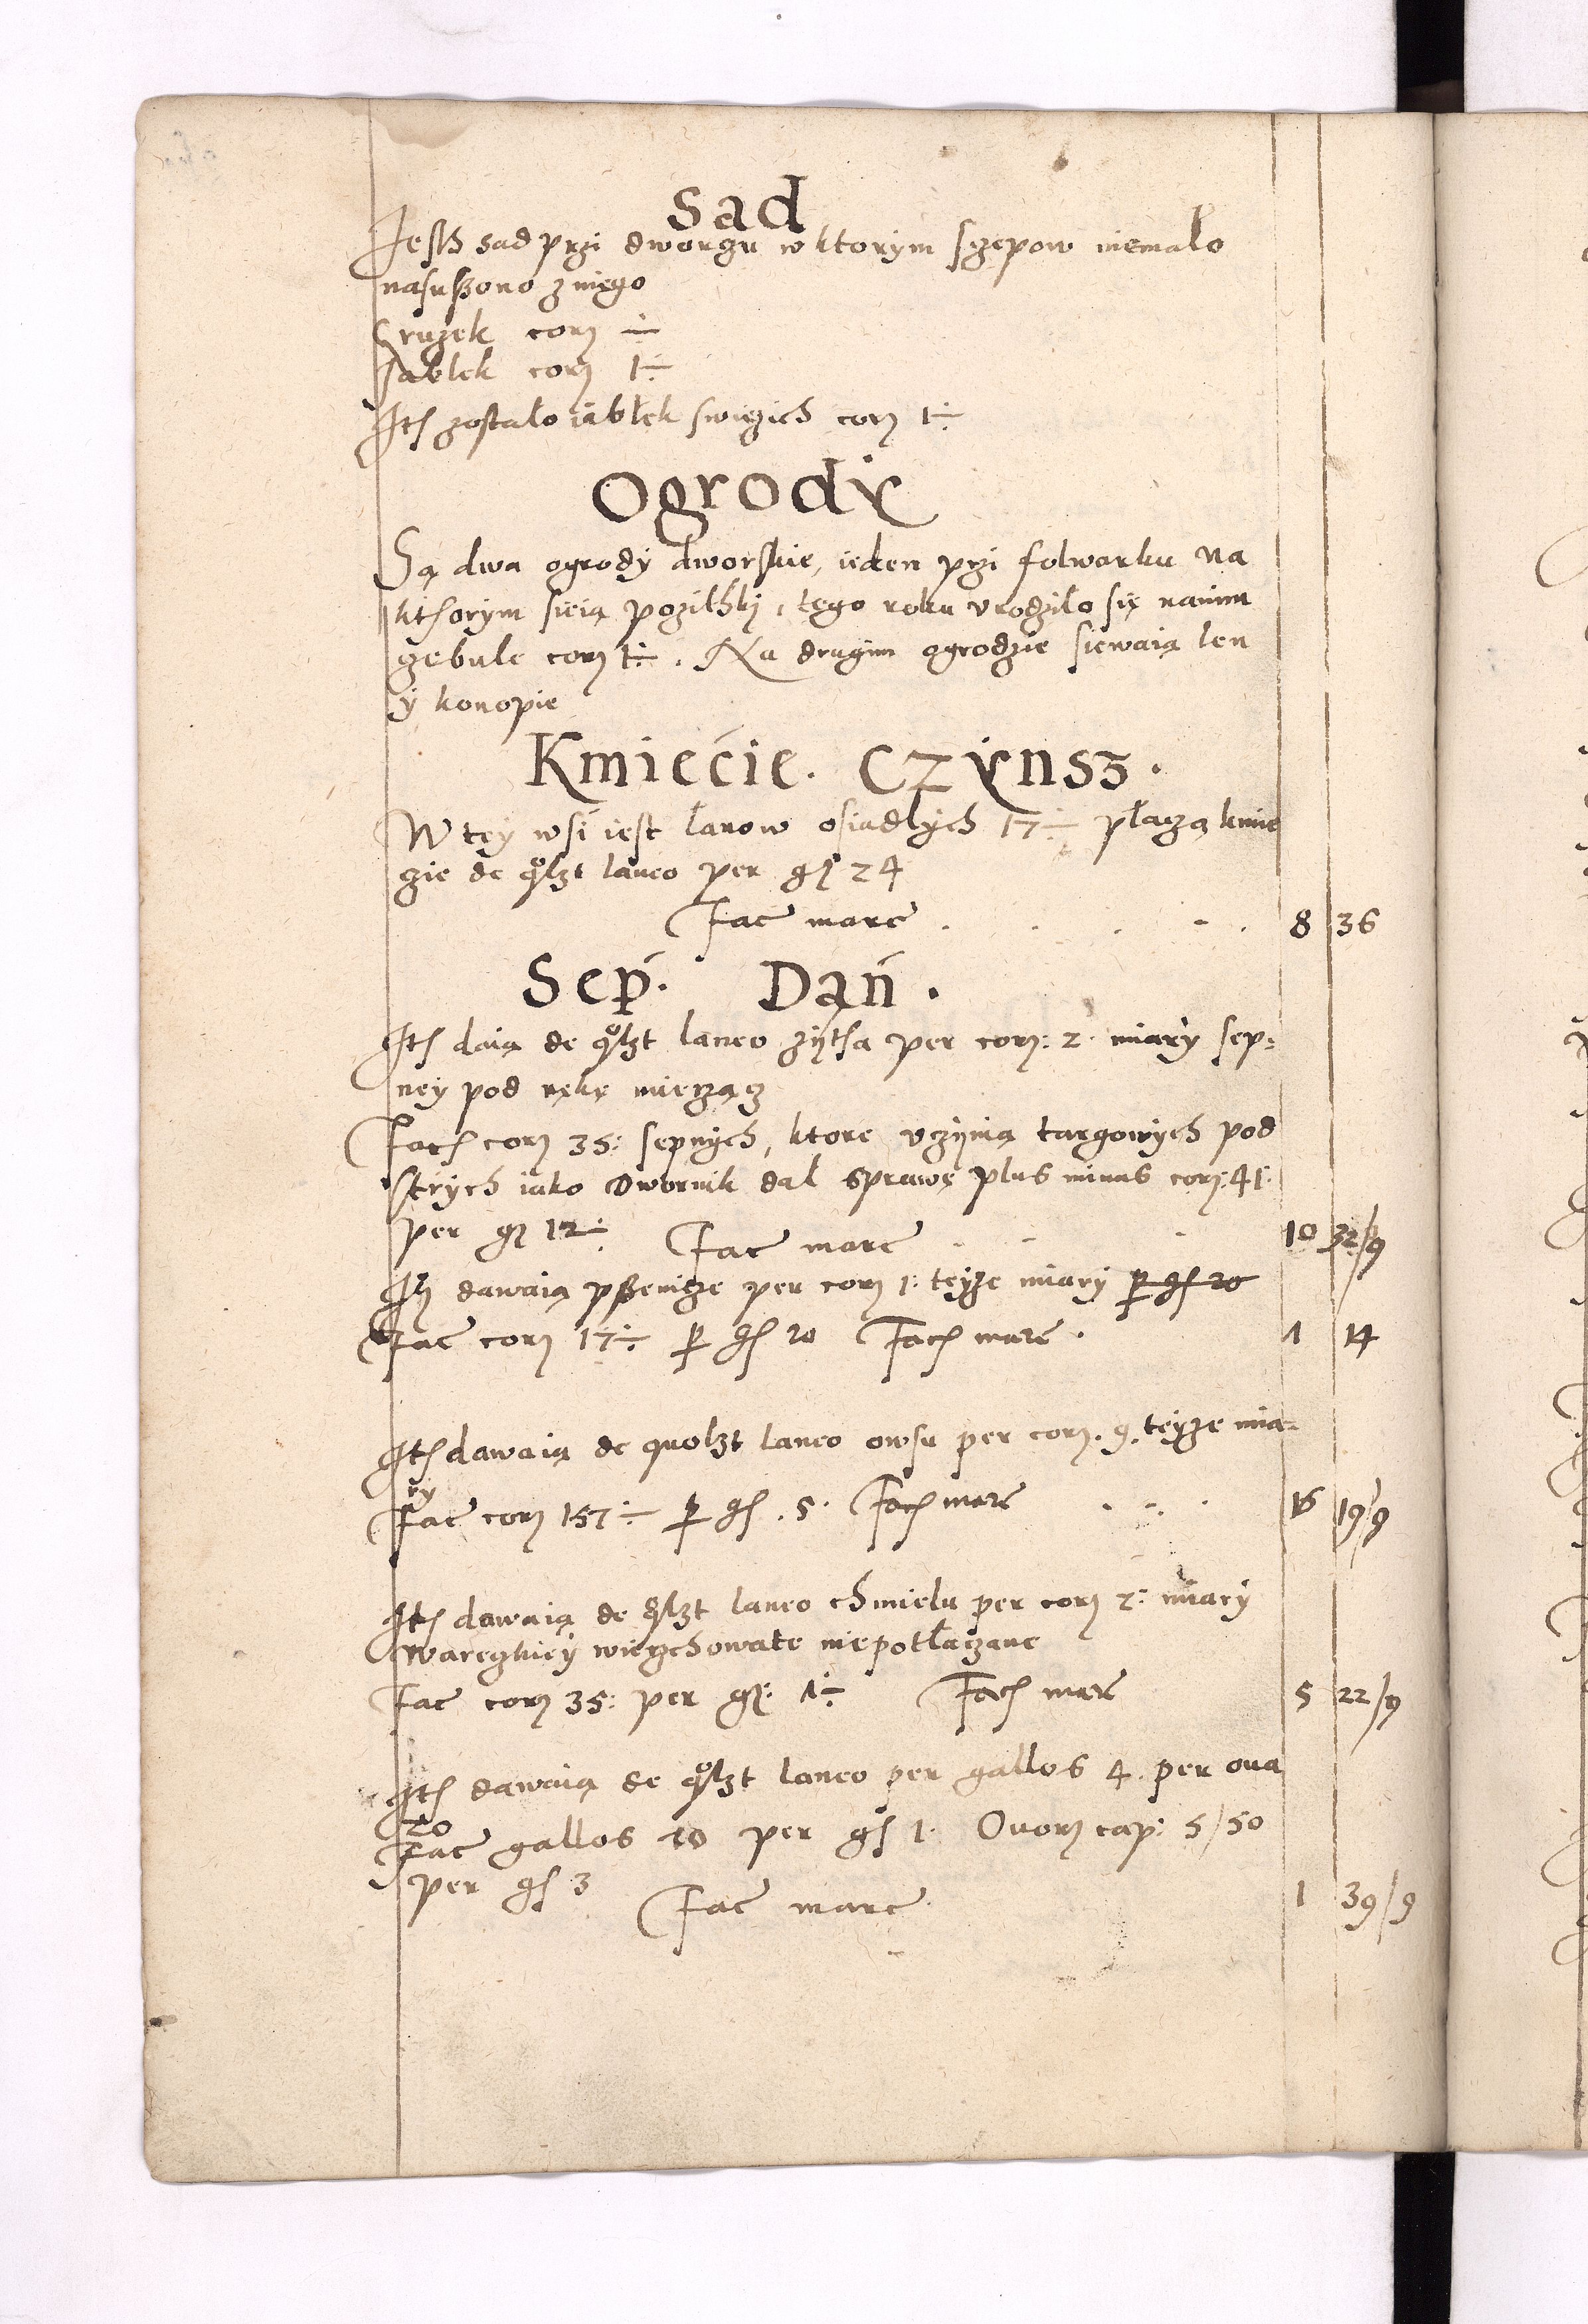 Sad
Jesth sad przi dworzu w ktorym sczepow niemało
nasuszono z niego
Gruzek cor ÷
Jablek cor 1÷
Ith zostało iabłek swiezich cor 1÷
Ogrody
Są dwa ogrody dworskie, ieden przi folwarku na
kthorym sieią pozithki, tego roku vrodziło się nanim
czebule cor 1÷. Na drugim ogrodzie siewaią len
ÿ konopie
Kmiecie. Czÿnsz.
W tey wsi iest łanow osiadłych 17÷ płaczą kmie
czie de qlzt laneo per gr 24
Fac marc . . . . . 8 36
Sep. Dań.
Ith daią de qlzt laneo zÿtha per cor: 2. miary sep:
neÿ pod rękę mierząc
Fach cor 35: sepnych, ktore vczynią targowych pod
strych iako Dwornik dal sprawę plus minus cor: 41.
per gr 12÷ Fac marc 10 32/9
It dawaią pszenicze per cor 1: teÿze miary p gr 20
Fac cor 17÷ p gr 20 Fach marc . 1 14
Ith dawaią de quolzt laneo owsu per cor. 9. teÿze mia=
ry
Fac cor 157÷ p gr . 5. Fach marc . . . 16 19/9
Ith dawaią de qlzt laneo chmielu per cor 2: miary
Wareczkieÿ wierzchowate niepotłaczane
Fac cor 35: per gr: 1÷ Fach marc 5 22/9
Ith dawaią de qlzt laneo per gallos 4. per oua
20
Fac gallos 70 per gr 1. Ouor cap: 5/50
per gr 3 Fac marc 1 39/9